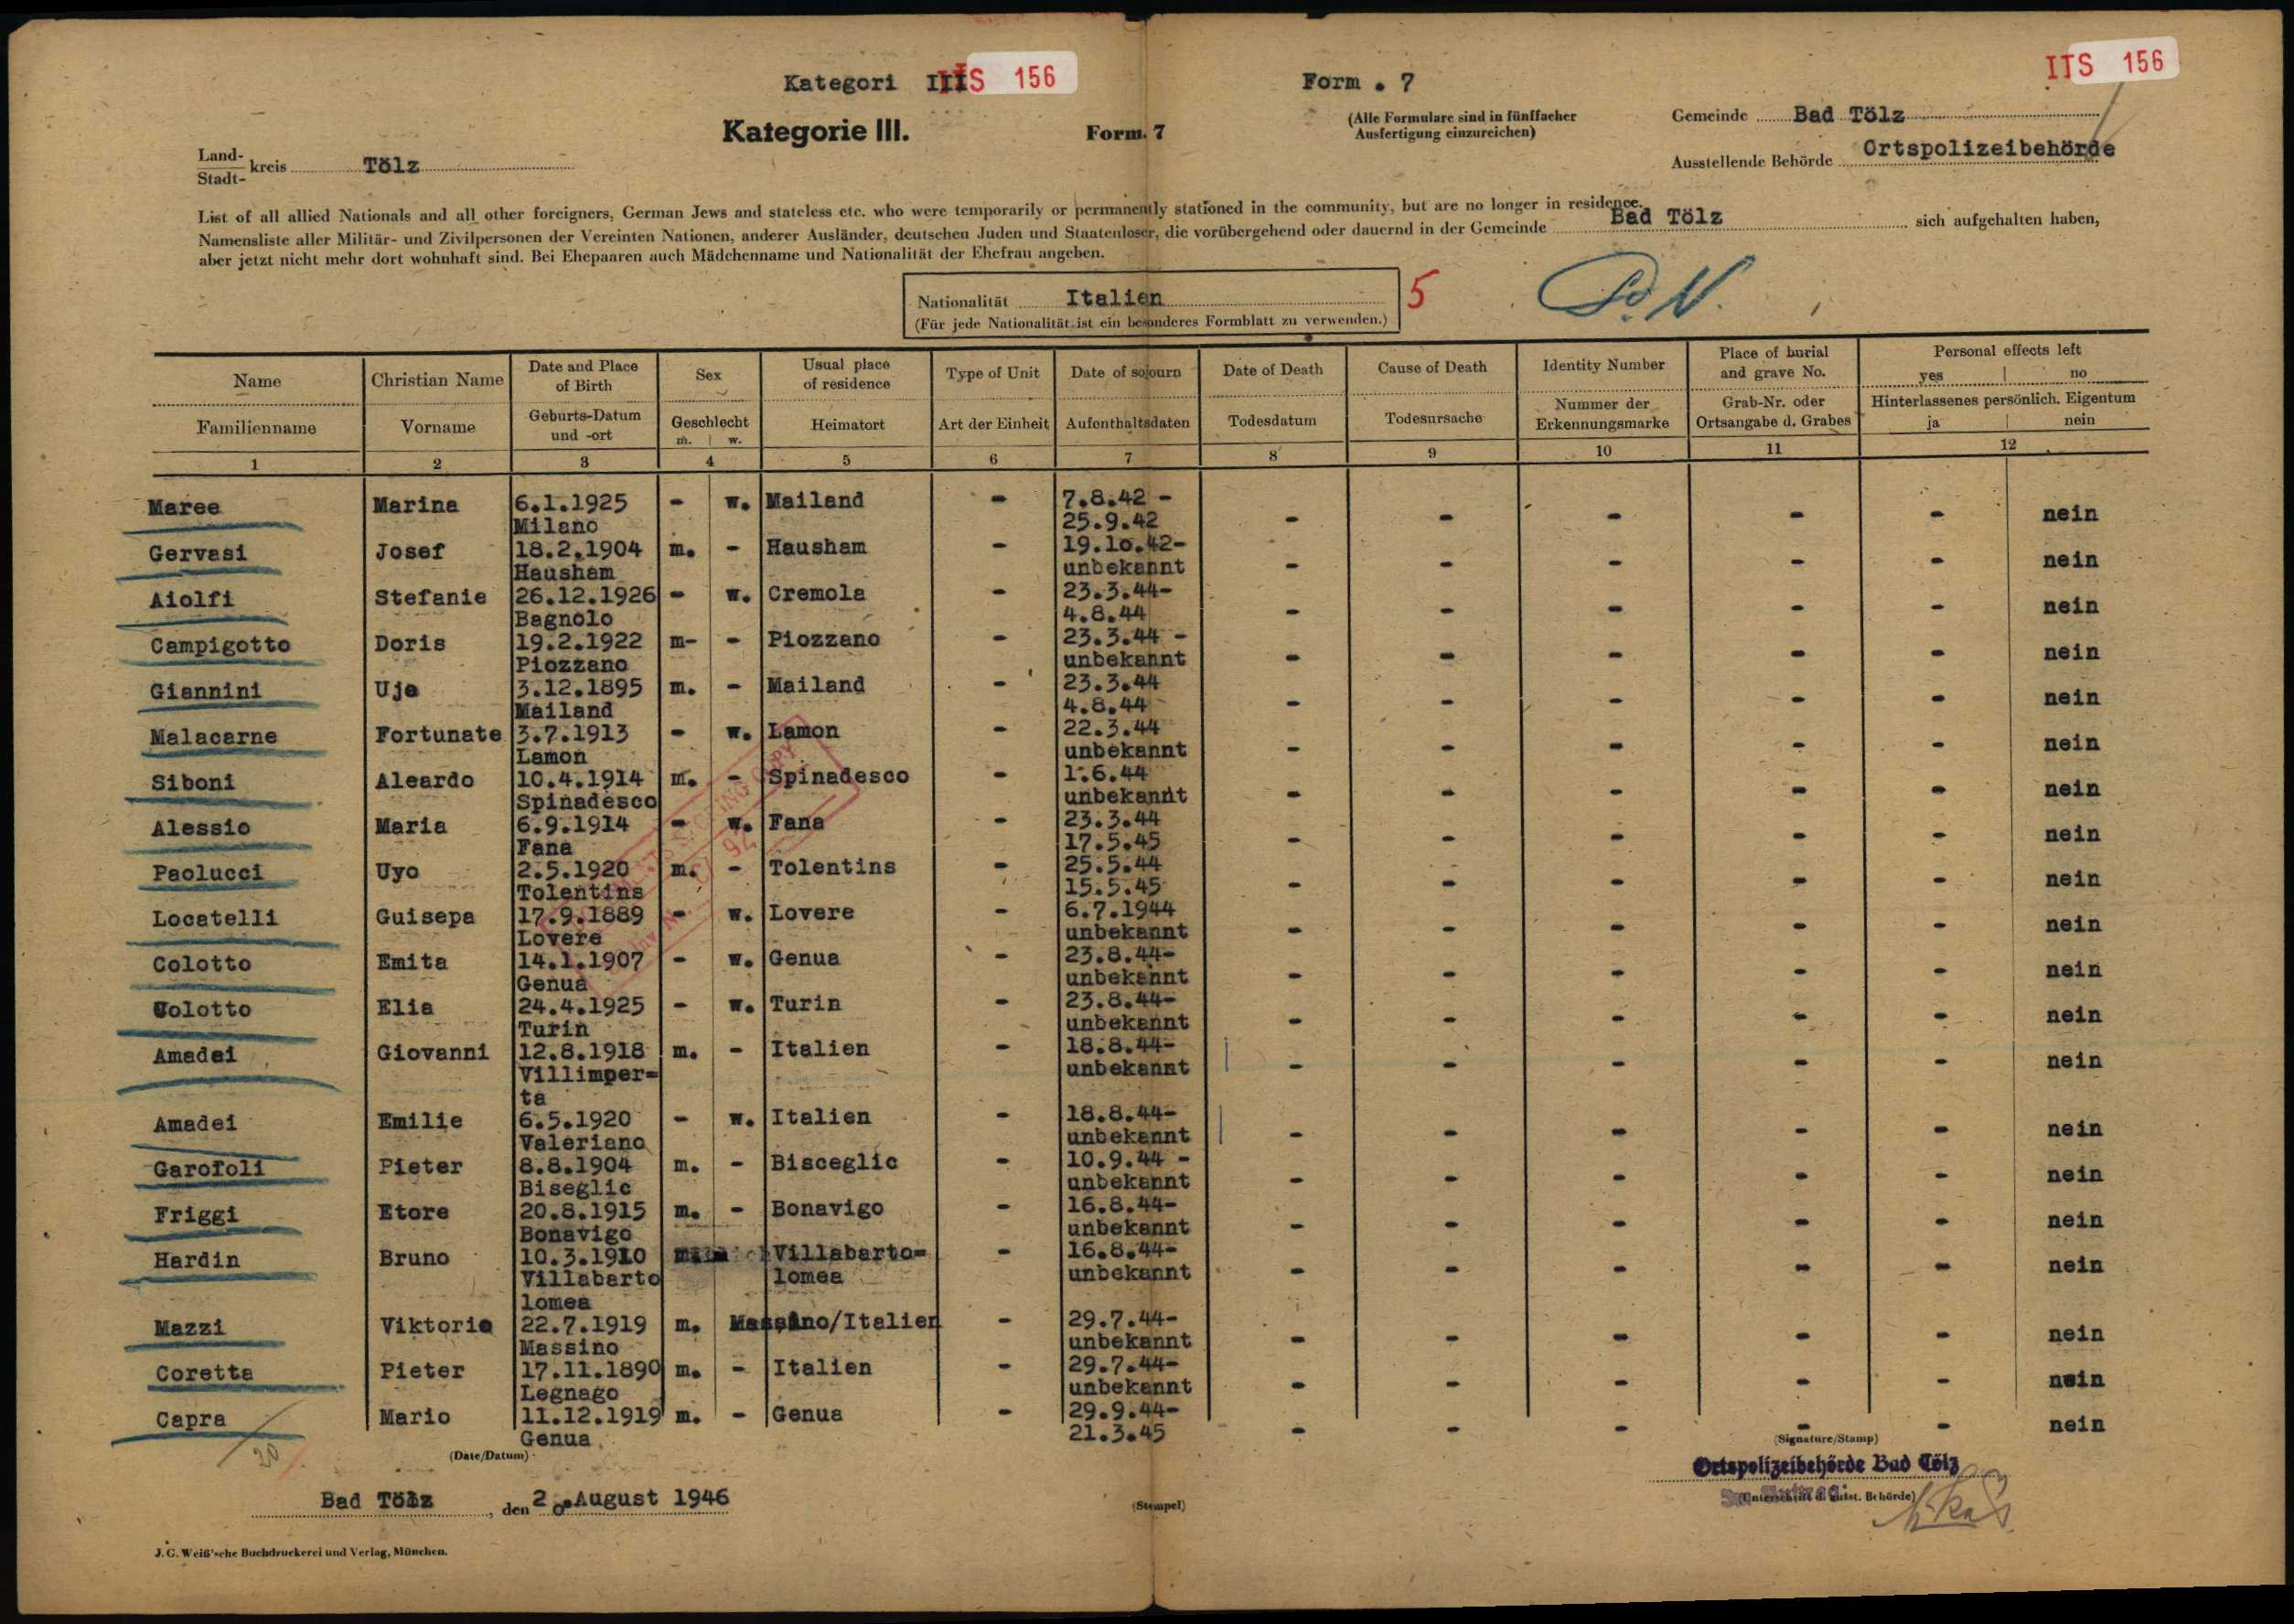 Kategori III ITS 156 Form . 7 ITS 156
Kategorie III. Form. 7 (Alle Formulare sind in fünffacher Ausfertigung einzureichen) Gemeinde Bad Tölz
Land- Stadt- kreis Tölz Ausstellende Behörde Ortspolizeibehörde
List of all allied Nationals and all other foreigners, German Jews and stateless etc. who were temporarily or permanently stationed in the community, but are no longer in residence.
Namensliste aller Militär- und Zivilpersonen der Vereinten Nationen, anderer Ausländer, deutschen Juden und Staatenloser, die vorübergehend oder dauernd in der Gemeinde Bad Tölz sich aufgehalten haben,
aber jetzt nicht mehr dort wohnhaft sind. Bei Ehepaaren auch Mädchenname und Nationalität der Ehefrau angeben.
Nationalität Italien 5
(Für jede Nationalität ist ein besonderes Formblatt zu verwenden.)
Name Christian Name Date and Place of Birth Sex Usual place of residence Type of Unit Date of sojourn Date of Death Cause of Death Identity Number Place of burial and grave No. Personal effects left yes no
Familienname Vorname Geburts-Datum und -ort Geschlecht m. w. Heimatort Art der Einheit Aufenthaltsdaten Todesdatum Todesursache Nummer der Erkennungsmarke Grab-Nr. oder Ortsangabe d. Grabes Hinterlassenes persönlich. Eigentum ja nein
1 2 3 4 5 6 7 8 9 10 11 12
Maree Marina 6.1.1925 - w. Mailand - 7.8.42 -
Milano 25.9.42 - - - - - nein
Gervasi Josef 18.2.1904 m. - Hausham - 19.10.42-
Hausham unbekannt - - - - - nein
Aiolfi Stefanie 26.12.1926 - w. Cremola - 23.3.44-
Bagnolo 4.8.44 - - - - - nein
Campigotto Doris 19.2.1922 m- - Piozzano - 23.3.44 -
Piozzano unbekannt - - - - - nein
Giannini Uje 3.12.1895 m. - Mailand - 23.3.44
Mailand 4.8.44 - - - - - nein
Malacarne Fortunate 3.7.1913 - w. Lamon - 22.3.44
Lamon unbekannt - - - - - nein
Siboni Aleardo 10.4.1914 m. - Spinadesco - 1.6.44
Spinadesco unbekannt - - - - - nein
Alessio Maria 6.9.1914 - w. Fana - 23.3.44
Fana 17.5.45 - - - - - nein
Paolucci Uyo 2.5.1920 m. - Tolentins - 25.5.44
Tolentins 15.5.45 - - - - - nein
Locatelli Guisepa 17.9.1889 - w. Lovere - 6.7.1944
Lovere unbekannt - - - - - nein
Colotto Emita 14.1.1907 - w. Genua - 23.8.44-
Genua unbekannt - - - - - nein
Colotto Elia 24.4.1925 - w. Turin - 23.8.44-
Turin unbekannt - - - - - nein
Amadei Giovanni 12.8.1918 m. - Italien - 18.8.44-
Villimper= unbekannt - - - - - nein
ta
Amadei Emilie 6.5.1920 - w. Italien - 18.8.44-
Valeriano unbekannt - - - - - nein
Garofoli Pieter 8.8.1904 m. - Bisceglic - 10.9.44 -
Biseglic unbekannt - - - - - nein
Friggi Etore 20.8.1915 m. - Bonavigo - 16.8.44-
Bonavigo unbekannt - - - - - nein
Hardin Bruno 10.3.1910 Villabarto= - 16.8.44-
Villabarto lomea unbekannt - - - - - nein
lomea
Mazzi Viktorio 22.7.1919 m. Massino/Italien - 29.7.44-
Massino unbekannt - - - - - nein
Coretta Pieter 17.11.1890 m. - Italien - 29.7.44-
Legnago unbekannt - - - - - nein
Capra Mario 11.12.1919 m. - Genua - 29.9.44-
Genua 21.3.45 - - - - - nein
20
(Date/Datum) (Signature/Stamp)
Ortspolizeibehörde Bad Tölz
Bad Tölz, den 2. August 1946 (Stempel) (Unterschrift d. ausst. Behörde)
J. G. Weiß'sche Buchdruckerei und Verlag, München.